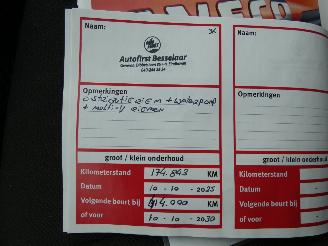 Naam:
Naam:
Autofirst Besselaar
Opmerkingen
Opmerkingen
distributieriem + waterpomp
+ multi-V riemen
groot / klein onderhoud
groot / klein onderhoud
Kilometerstand 174.893 KM
Kilometerstand
Datum 10 - 10 - 2025
Datum
Volgende beurt bij 414.000 KM
Volgende beurt bij
of voor 10 - 10 - 2030
of voor